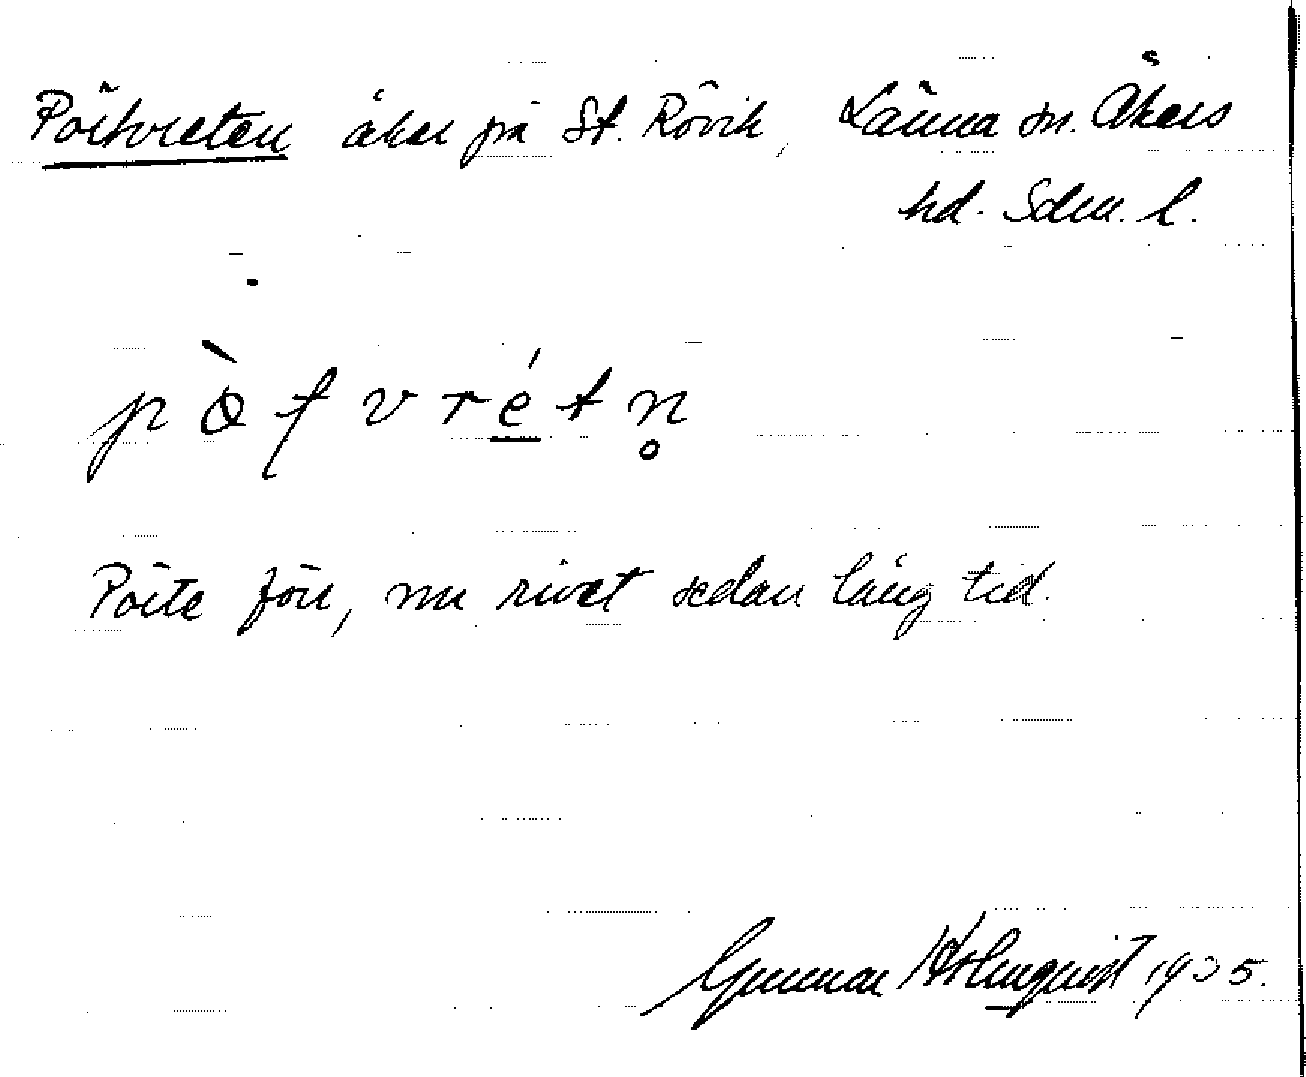 Pörtvreten åker på St. Rövik, Länna sn. Åkers
hd. Sdm. l.
Pörte förr, nu rivet sedan lång tid.
Gunnar Holmquist 1935.